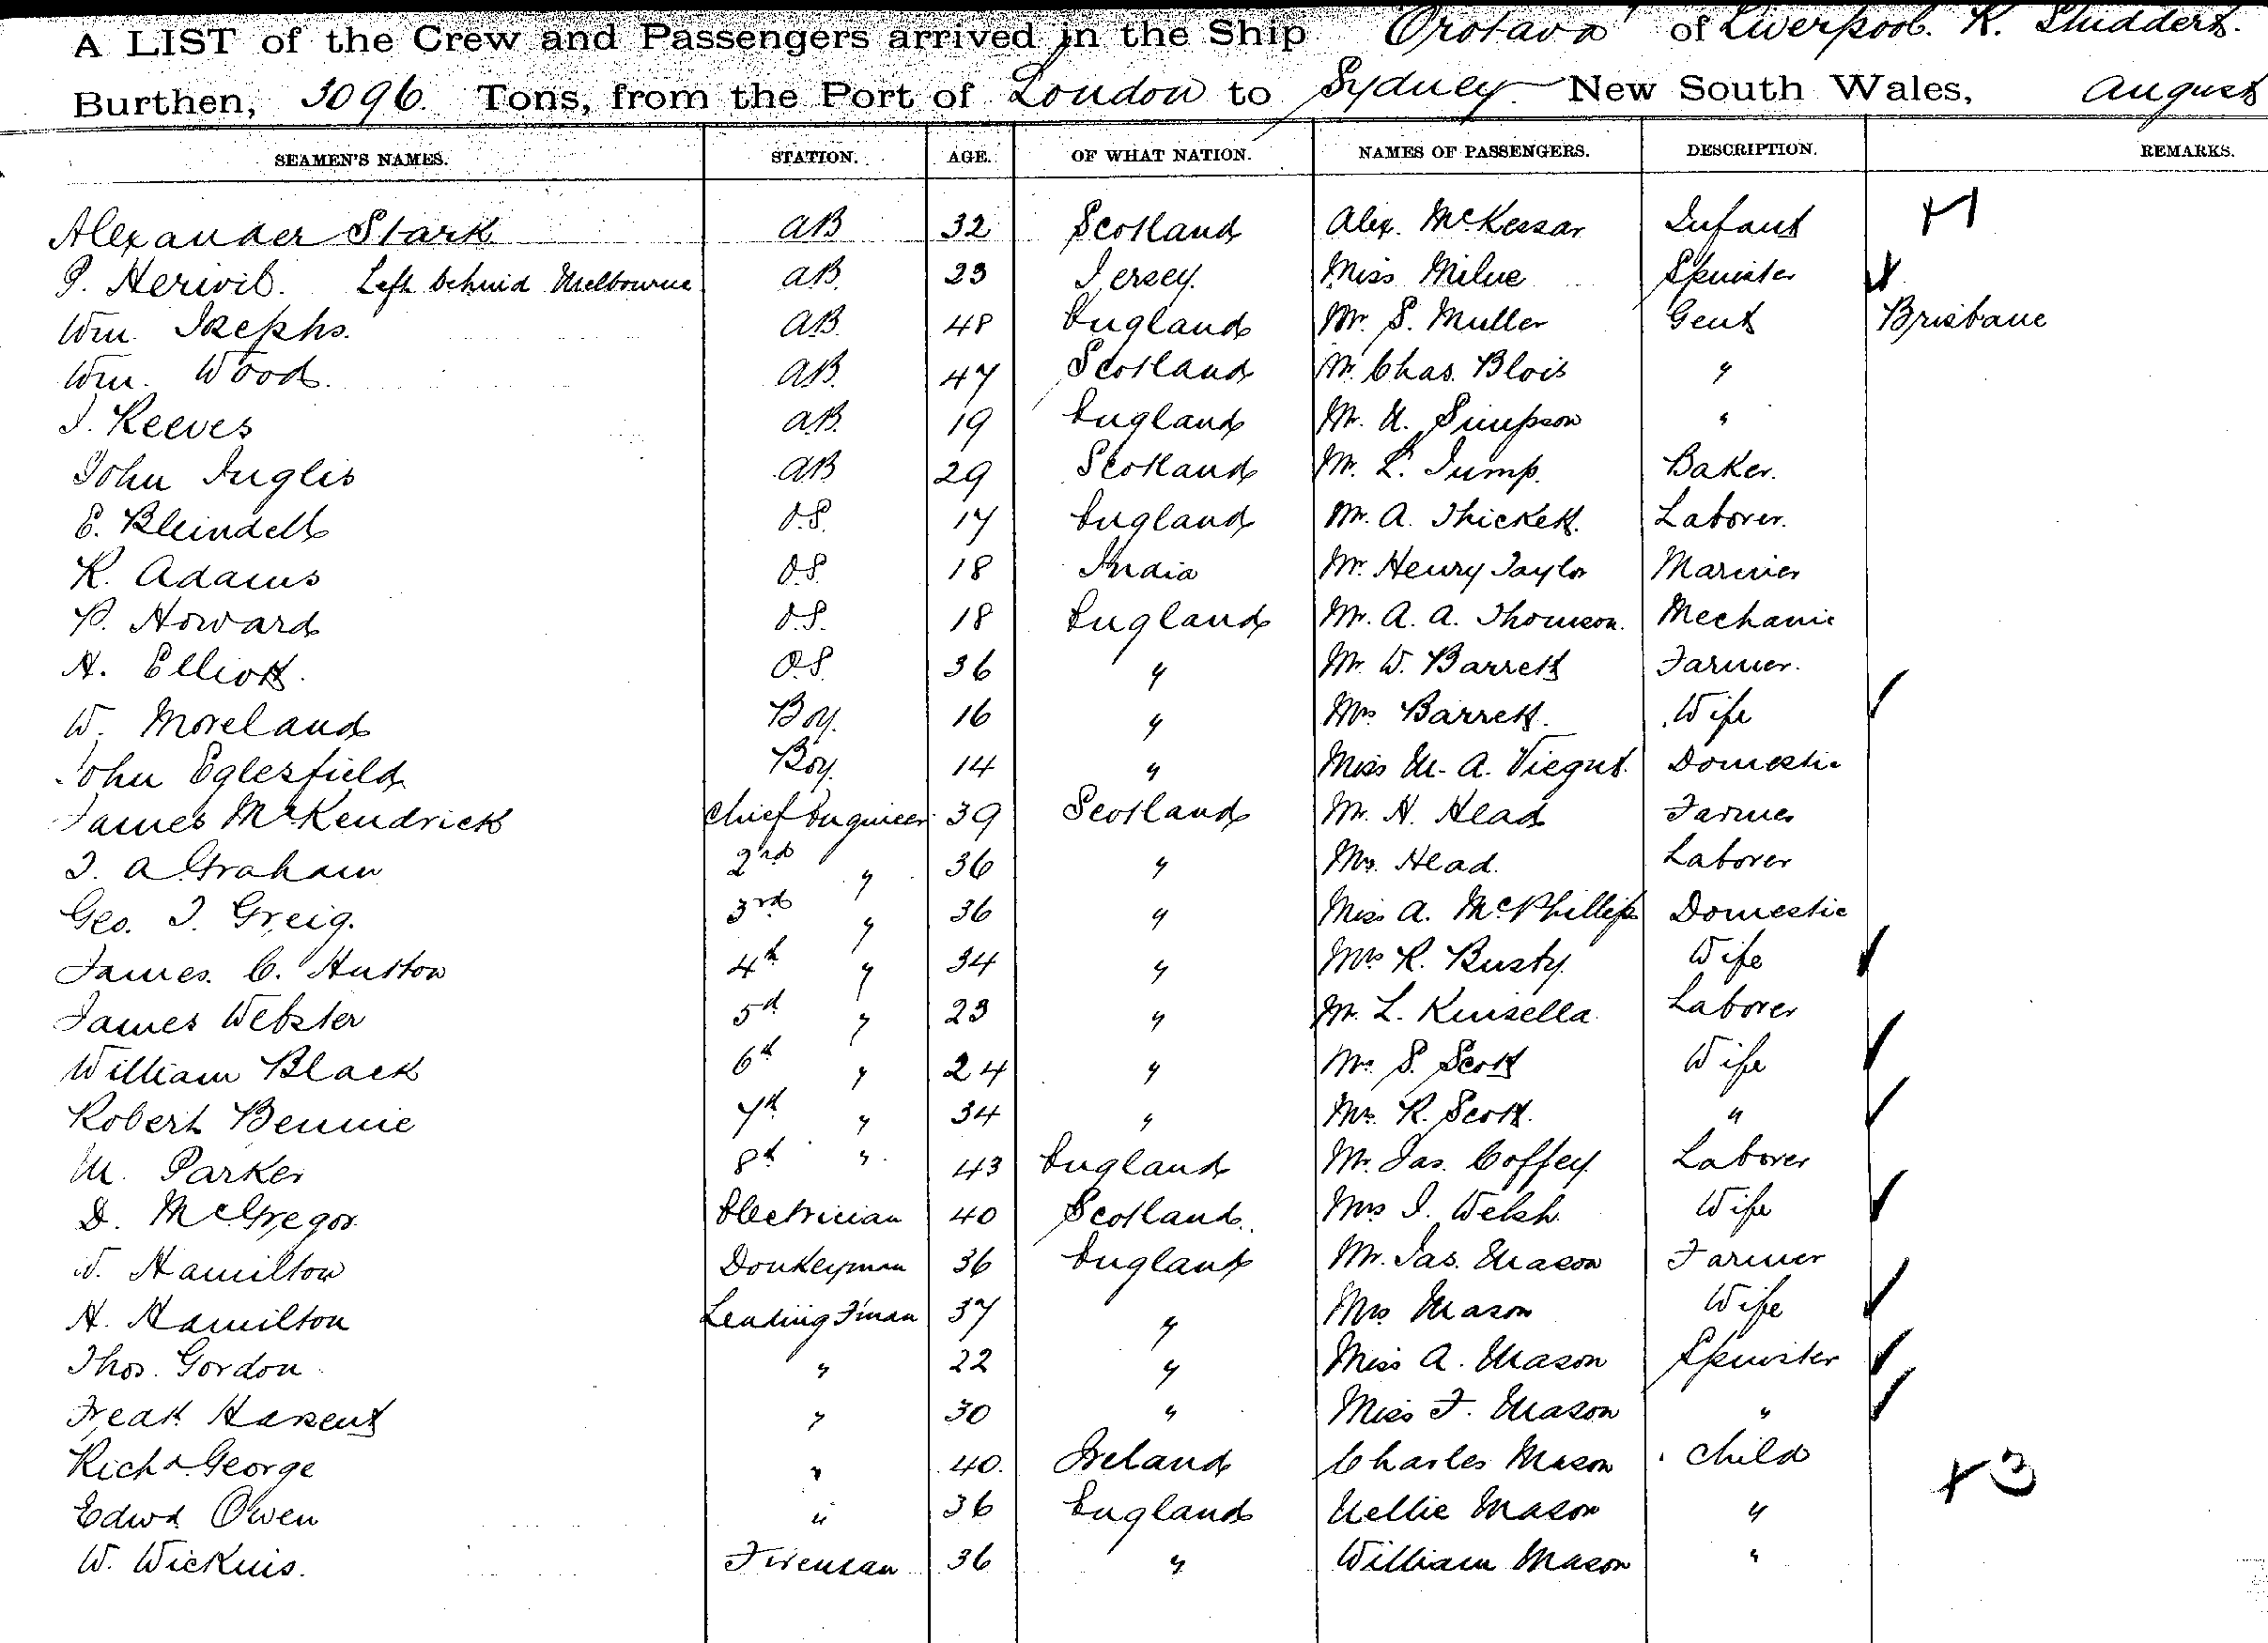 A LIST of the Crew and Passengers arrived in the Ship "Orotava" of Liverpool. K. Studdert.
Burthen, 3096. Tons, from the Port of London to Sydney New South Wales, August
SEAMEN'S NAMES. STATION. AGE. OF WHAT NATION. NAMES OF PASSENGERS. DESCRIPTION. REMARKS.
Alexander Stark AB 32 Scotland Alex. McKessar Infant x1
P. Left behind Melbourne AB 23 Jersey. Miss Milne Spinster
Wm. Josephs. AB. 48 England Mr. S. Muller Gent Brisbane
Wm. Wood. AB. 47 Scotland Mr. Chas. Blois "
J. Reeves AB. 19 England Mr. Simpson "
John Inglis AB 29 Scotland Mr. L. Jump. Baker.
E. Bleindell O.S. 17 England Mr. A. Thickett. Laborer.
R. Adams O.S. 18 India Mr. Henry Taylor Mariner
P. Howard O.S. 18 England Mr. A. A. Thomson. Mechanic
H. Elliott. O.S. 36 " Mr. W. Barrett Farmer.
W. Moreland Boy. 16 " Mrs Barrett. Wife
John Eglesfield Boy. 14 " Miss M. A. Viegut. Domestic
James McKendrick Chief Engineer 39 Scotland Mr. H. Head Farmer
J. A Graham 2nd " 36 " Mrs. Head. Laborer
Geo. J. Greig. 3rd " 36 " Miss A. McPhillips Domestic
James. C. Hutton 4th " 34 " Mrs R. Busty. Wife
James Webster 5th " 23 " Mr. L. Kinsella. Laborer
William Black 6th " 24 " Mrs S. Scott Wife
Robert Bennie 7th " 34 " Mrs. R. Scott. "
M. Parker 8th " 43 England Mr. Jas. Coffey. Laborer
D. McGregor Electrician 40 Scotland. Mrs J. Welsh. Wife
Hamilton Donkeyman 36 England Mr. Jas. Mason Farmer
H. Hamilton Leading F'man 37 " Mrs. Mason Wife
Thos. Gordon " 22 " Miss A. Mason Spinster
Fredk Hasent " 30 " Miss F. Mason "
Richd George " 40. Ireland Charles Mason Child x3
Edwd. Owen " 36 England Nellie Mason "
W. Wickins. Fireman 36 " William Mason "